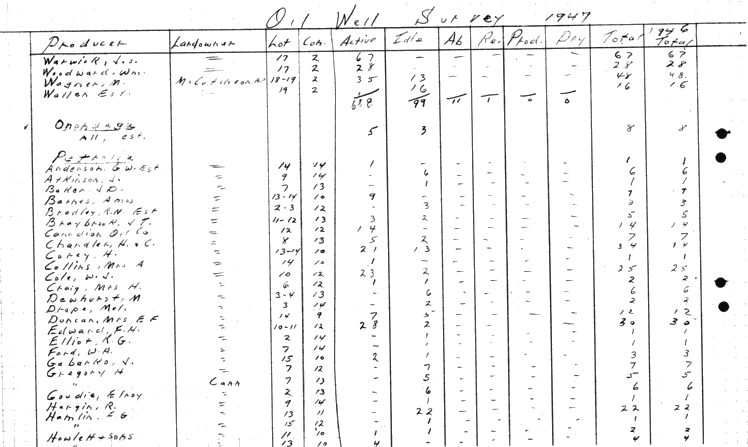 Oil Well Survey 1947
Producer Landowner Lot Con. Active Idle Ab Re. Prod. Dry Total 1946 Total
Warwick, J.S. " 17 2 67 - - - - - 67 67
Woodward, Wm. " 17 2 28 - - - - - 28 28
Wagner, M. McCutcheon 18-19 2 35 13 - - - - 48 48
Walker Est. 19 2 16 - - - - 16 16
99 11 1 0 0
Onondaga
All, est. 5 3 8 8
Petrolia
Anderson, G.W. Est " 14 14 1 - - - - - 1 1
Atkinson, J. " 9 14 - 6 - - - - 6 6
Baker, J.D. " 7 13 - 1 - - - - 1 1
Barnes, Amos " 13-14 10 9 - - - - - 9 9
Bradley, R.N. Est " 2-3 12 - 3 - - - - 3 3
Braybrook, J.T. " 11-12 13 3 2 - - - - 5 5
Canadian Oil Co " 12 12 14 - - - - - 14 14
Chandler, H. & C. " 8 13 5 2 - - - - 7 7
Corey, H. " 13-14 10 21 13 - - - - 34
Collins, Mrs A " 14 10 1 - - - - - 1 1
Cole, W.J. " 10 12 23 2 - - - - 25 25
Craig, Mrs H. " 6 12 1 1 - - - - 2 2
Dewhurst, M " 3-4 13 - 6 - - - - 6 6
Drope, Mel. " 3 14 - 2 - - - - 2 2
Duncan, Mrs E F " 14 9 7 5 - - - - 12 12
Edward, F.H. " 10-11 12 28 2 - - - - 30 30
Elliot, R.G. " 2 14 - 1 - - - - 1 1
Ford, W.A. " 7 14 - 1 - - - - 1 1
Gaberko, J. " 15 10 2 1 - - - - 3 3
Gregory H " 7 12 - 7 - - - - 7 7
" Cann 7 13 - 5 - - - - 5 5
Goudie, Elroy " 2 13 - 6 - - - - 6 6
Hargin, R. " 9 14 - 1 - - - - 1 1
Hamlin, E G " 13 11 - 22 - - - - 22 22
" 15 12 - 1 - - - - 1 1
Howlett & Sons " 11 10 1 1 - - - - 2 2
" 13 10 4 - - - - - 4 4